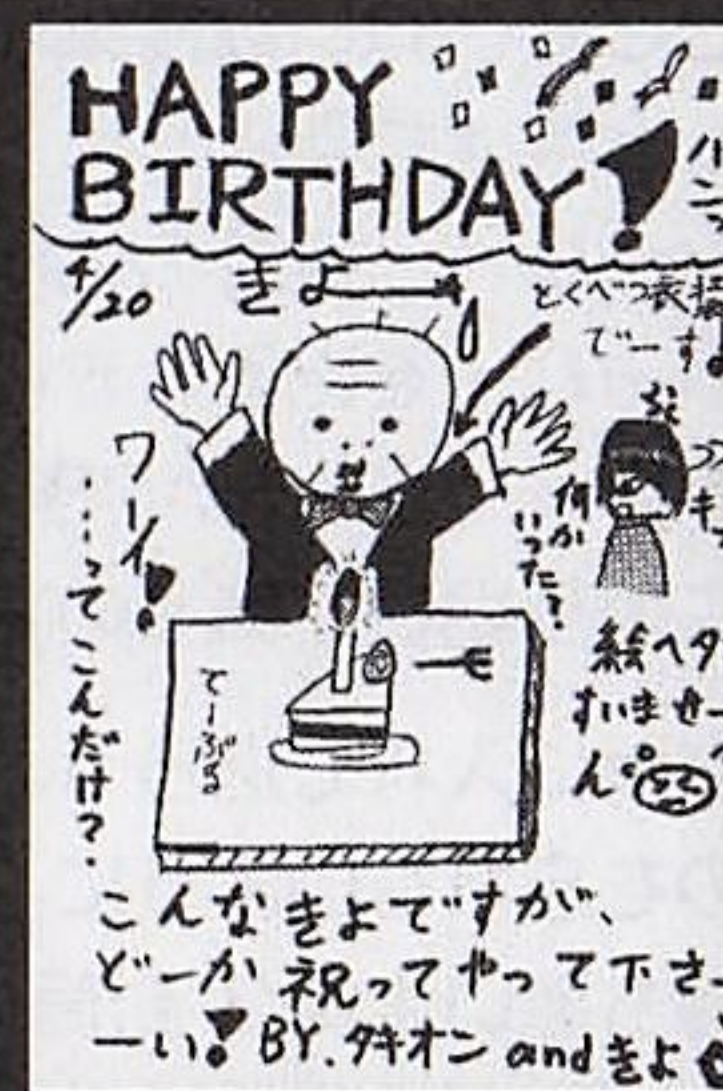 HAPPY
BIRTHDAY!
4/20
きよー
とくべつ衣
でーす!
ワーイ!
・・・ってこんだけ?
何か
いった?
てーぶる
絵ヘタ
すいませー
ん
こんなきよですが、
どーか祝ってやって下さ
ーい! BY.タキオン and きよ